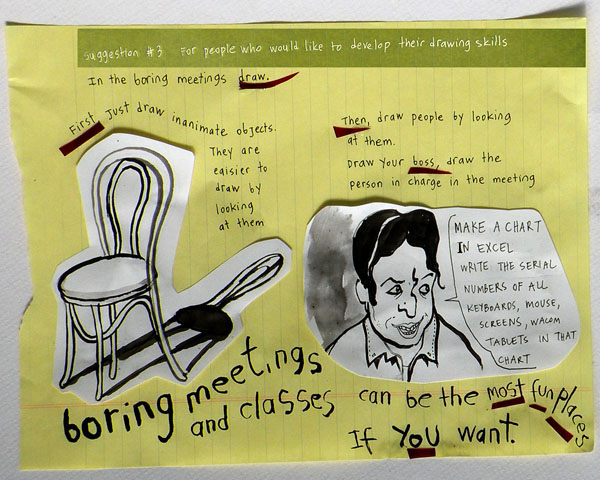 Suggestion #3 For people who would like to develop their drawing skills
In the boring meetings draw.
First Just draw inanimate objects.
They are
eaisier to
draw by
looking
at them
Then, draw people by looking
at them.
Draw your boss, draw the
person in charge in the meeting
MAKE A CHART
IN EXCEL
WRITE THE SERIAL
NUMBERS OF ALL
KEYBOARDS, MOUSE,
SCREENS, WACOM
TABLETS IN THAT
CHART
boring meetings
and classes
can be the most fun places
If YOU want.